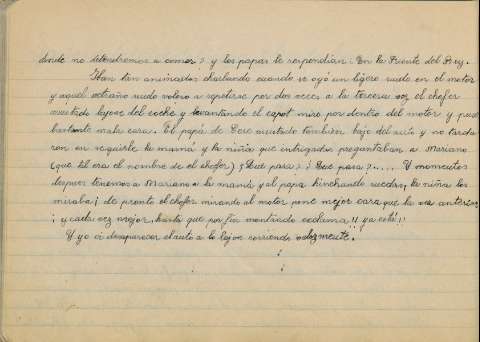 donde nos detendremos a comer? y los papas le respondian: En la Fuente del Rey.
Iban tan animados charlando cuando se oyó un ligero ruido en el motor
y aquel extraño ruido volvio a repetirse por dos veces a la tercera vez el chofer
asustado bajose del coche y levantando el capot miro por dentro del motor y puso
bastante mala cara. El papá de Pepe asustado tambien bajo del auto y no tarda
ron en seguirle la mamá y la niña que intrigados preguntaban a Mariano
(que tal era el nombre de el chofer) ¿Que pasa? ¿Que pasa?..... Y momentos
despues tenemos a Mariano a la mamá y al papa hinchando ruedas, la niña los
miraba; de pronto el chofer mirando al motor pone mejor cara que la vez anterior,
y cada vez mejor, hasta que por fin montando exclama!! ya está!!
Y yo vi desaparecer el auto a lo lejos corriendo velozmente.